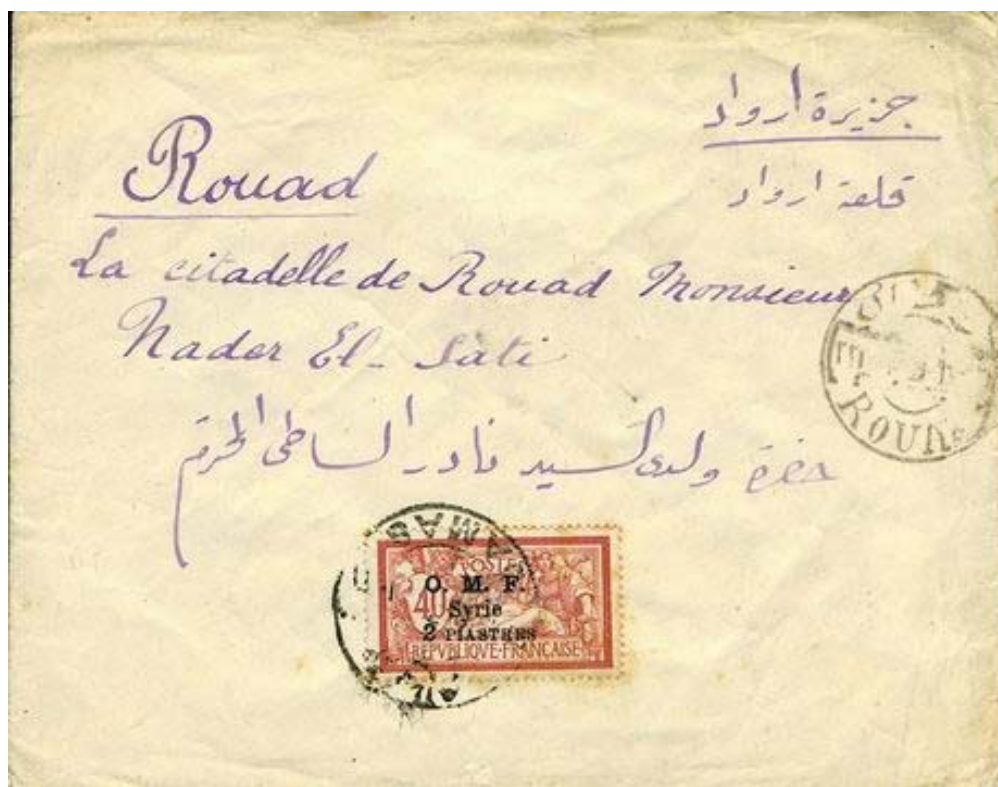 جزيرة ارواد
قلعة ارواد
Rouad
La citadelle de Rouad Monsieur
Nader El-Sati
حضرة ولدي السيد نادر الساطي المحترم
DAMAS
POSTE
O. M. F.
Syrie
40
2 PIASTRES
REPVBLIQVE-FRANÇAISE